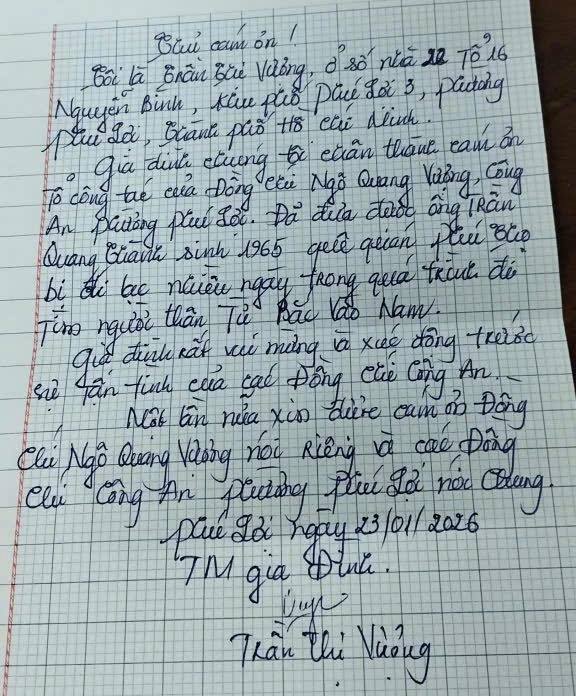 Thư cảm ơn!
Tôi là Trần Thị Vường, ở số nhà 22 Tổ 16
Nguyễn Bình, khu phố Phú Lợi 3, phường
Phú Lợi, Thành phố Hồ Chí Minh.
Gia đình chúng tôi chân thành cảm ơn
Tổ công tác của Đồng chí Ngô Quang Vường, Công
An phường Phú Lợi. Đã đưa được ông Trần
Quang Thành sinh 1965 quê quán Phú Thọ
bị đi lạc nhiều ngày trong quá trình đi
Tìm người thân Từ Bắc Vào Nam.
Gia đình rất vui mừng và xúc động trước
sự Tận tình của các Đồng chí Công An.
Một lần nữa xin được cảm ơn Đồng
chí Ngô Quang Vường nói Riêng và các Đồng
chí Công An phường Phú Lợi nói Chung.
Phú Lợi ngày 23/01/2026
TM gia Đình.
Trần Thị Vường